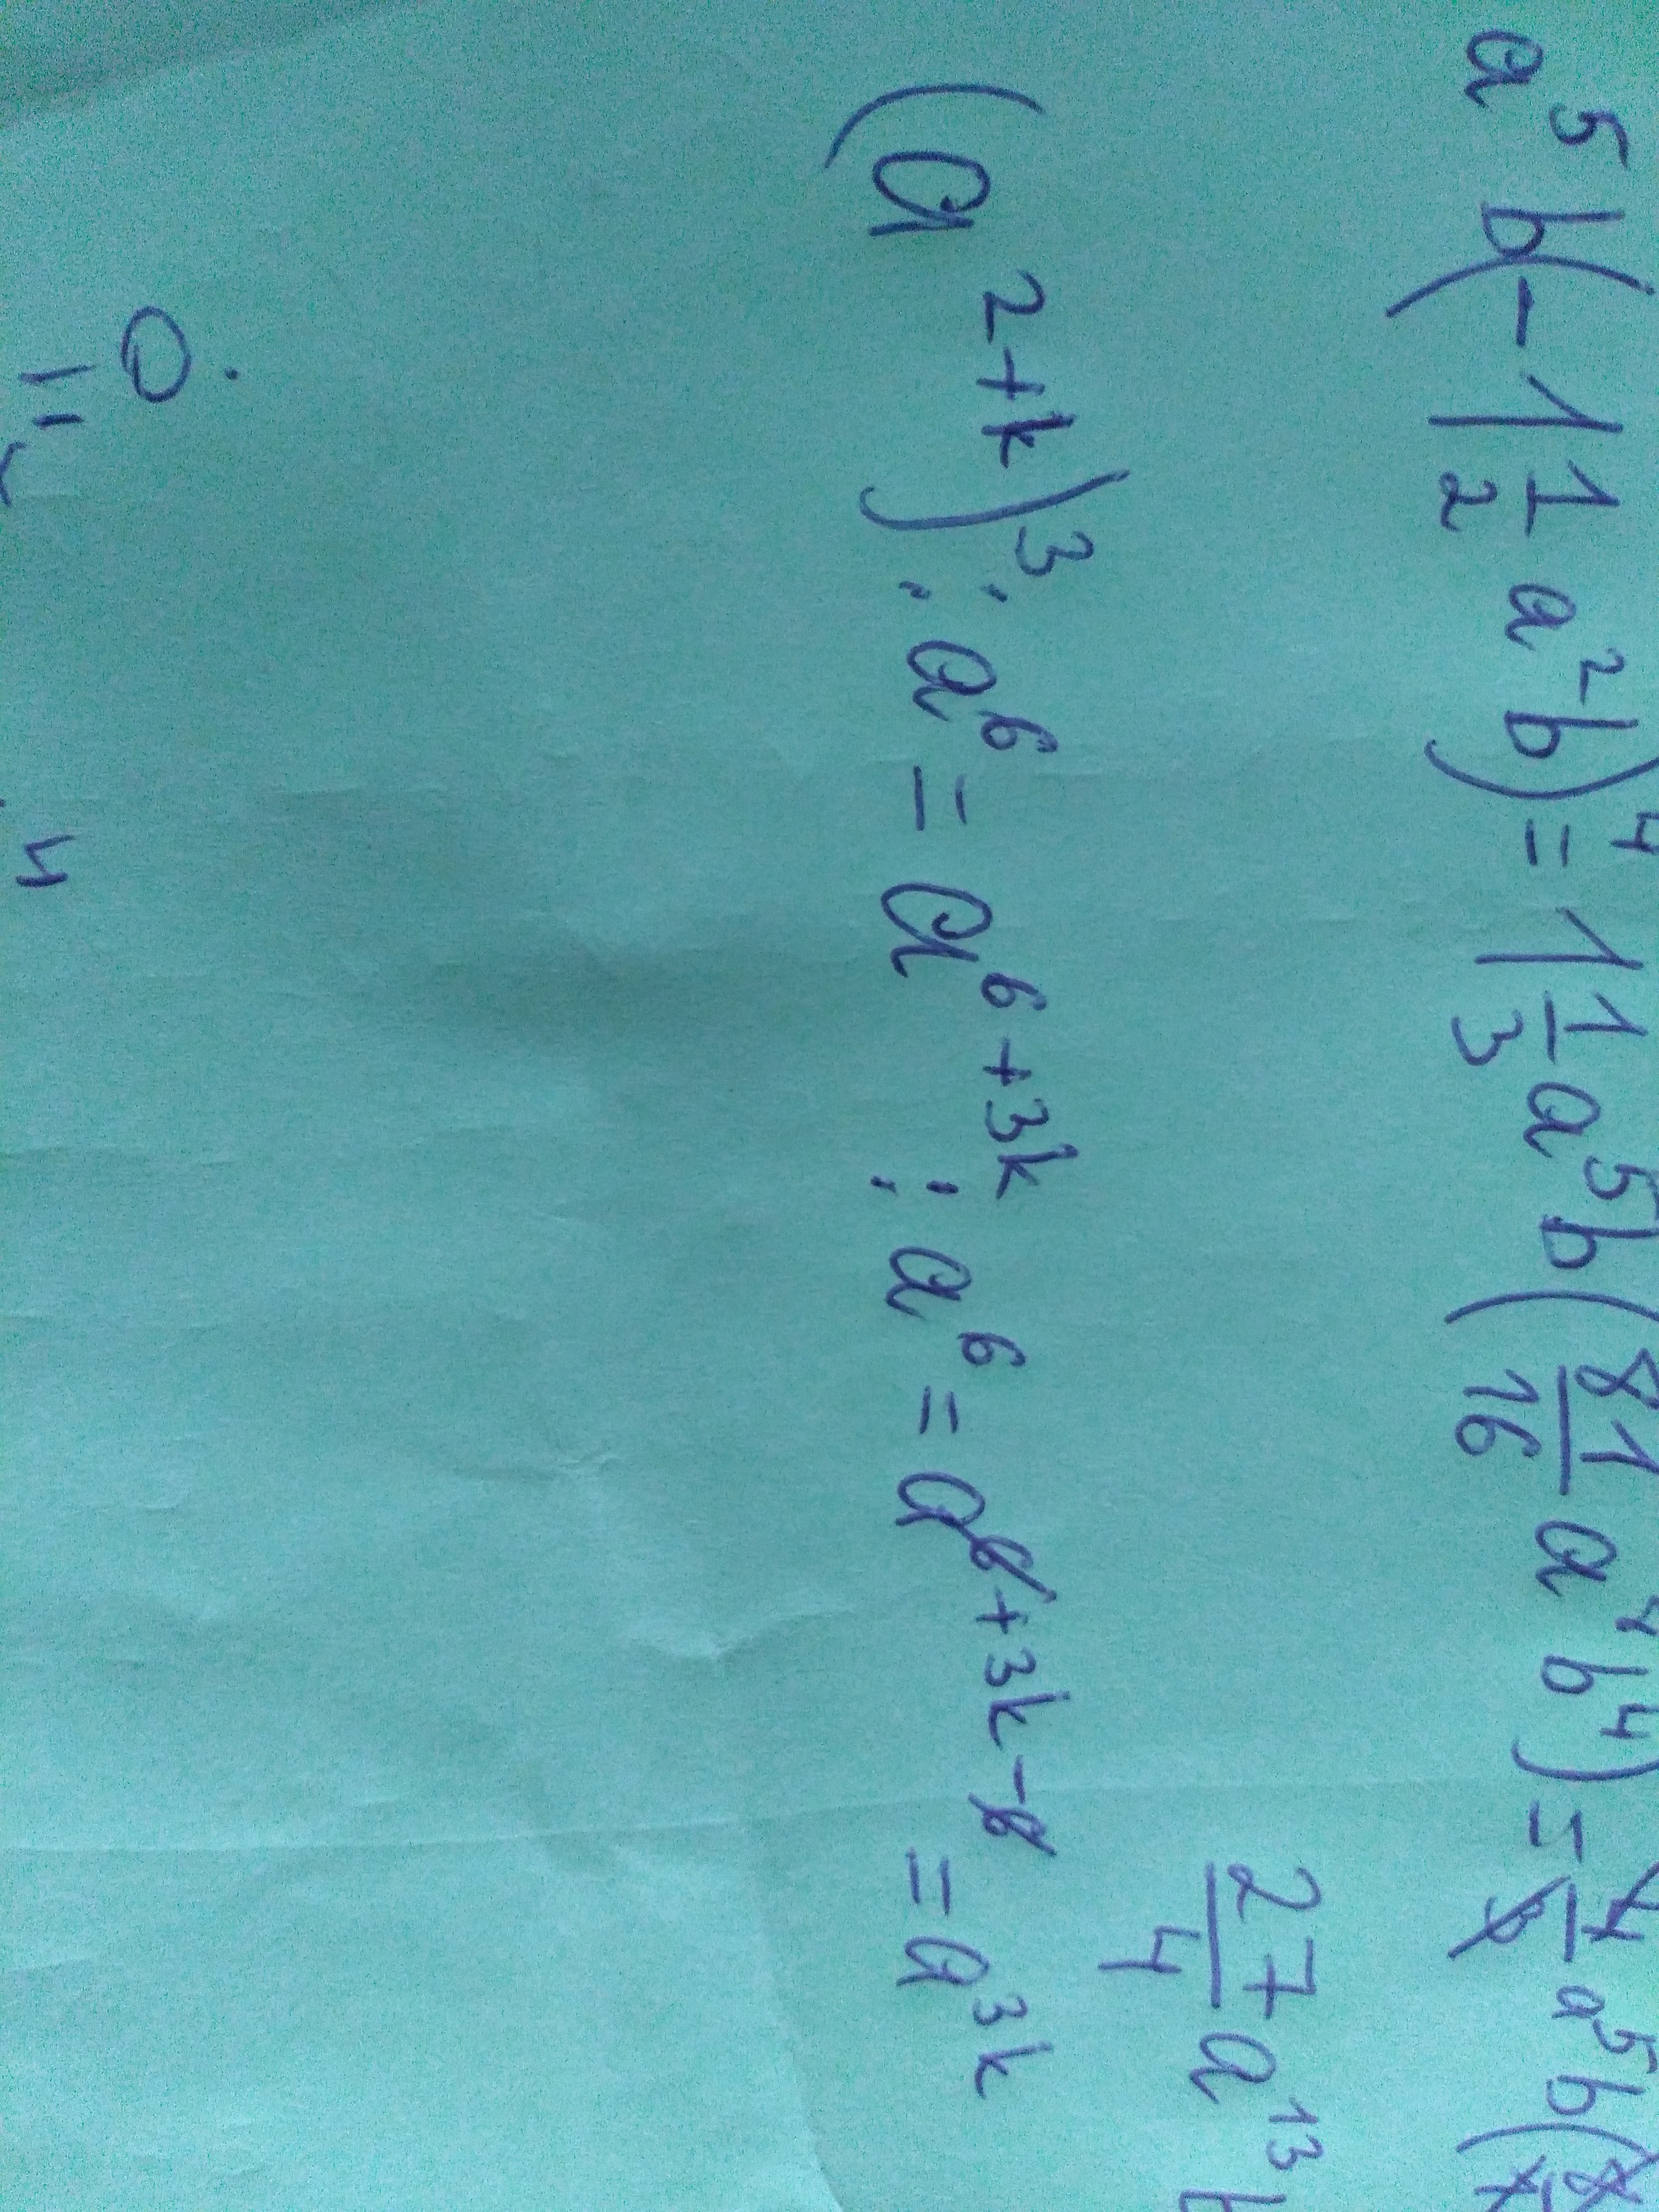 a⁵b(-1 1/2 a²b)⁴ = 1 1/3 a⁵b(81/16 a⁴b⁴) = 4/3 a⁵b(
27/4 a¹³b
(a²⁺ᵏ)³ : a⁶ = a⁶⁺³ᵏ : a⁶ = a⁶⁺³ᵏ⁻⁶ = a³ᵏ